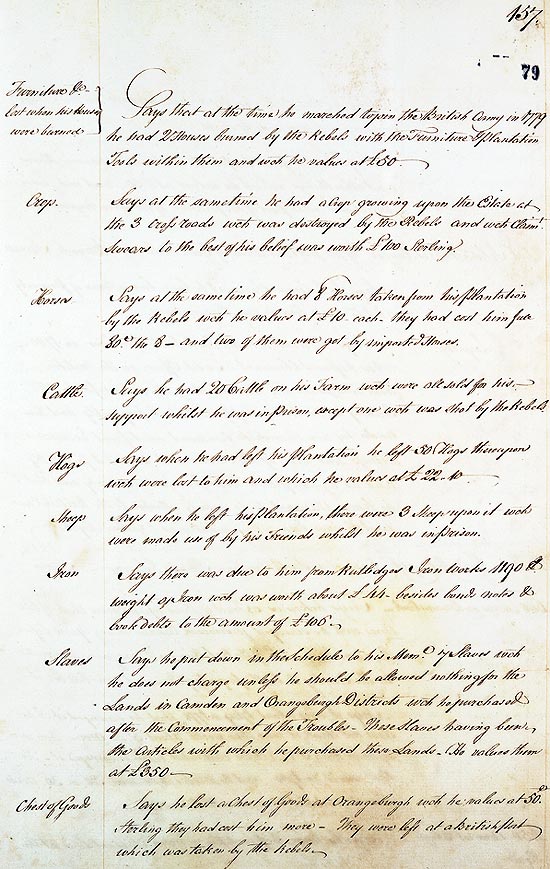 457.
79
Furniture &c
lost when his houses
were burned
Says that at the time he marched to join the British Army in 1779
he had 2 Houses burned by the Rebels with the Furniture & Plantation
Tools within them and wch he values at £50.
Crop.
Says at the same time he had a Crop growing upon the Estate at
the 3 cross roads wch was destroyed by the Rebels and wch Claimt
Swears to the best of his belief was worth £100 Sterling.
Horses
Says at the same time he had 8 Horses taken from his Plantation
by the Rebels wch he values at £10 each. they had cost him full
80.£ the 8 — and two of them were got by imported Horses.
Cattle.
Says he had 20 Cattle on his Farm wch were all sold for his
support whilst he was in prison, except one wch was shot by the Rebels
Hogs
Says when he had left his Plantation he left 50 Hogs thereupon
wch were lost to him and which he values at £22.10
Sheep
Says when he left his Plantation, there were 3 Sheep upon it wch
were made use of by his Friends whilst he was in prison.
Iron
Says there was due to him from Rutledges Iron Works 1190 lb
weight of Iron wch was worth about £14. besides bonds notes &
book debts to the amount of £106.
Slaves
Says he put down in the Schedule to his Meml. 7 Slaves wch
he does not charge unless he should be allowed nothing for the
Lands in Camden and Orangeburgh Districts wch he purchased
after the Commencement of the Troubles — These Slaves having been
the Articles with which he purchased these Lands — He values them
at £350 —
Chest of Goods
Says he lost a Chest of Goods at Orangeburgh wch he values at 50.£
Sterling they had cost him more — They were left at a British Post
which was taken by the Rebels.